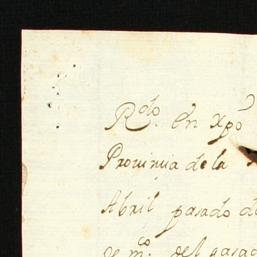 Rdo. En Xpo
Provinçia de la
Abril pasado d
de mo. del pasad